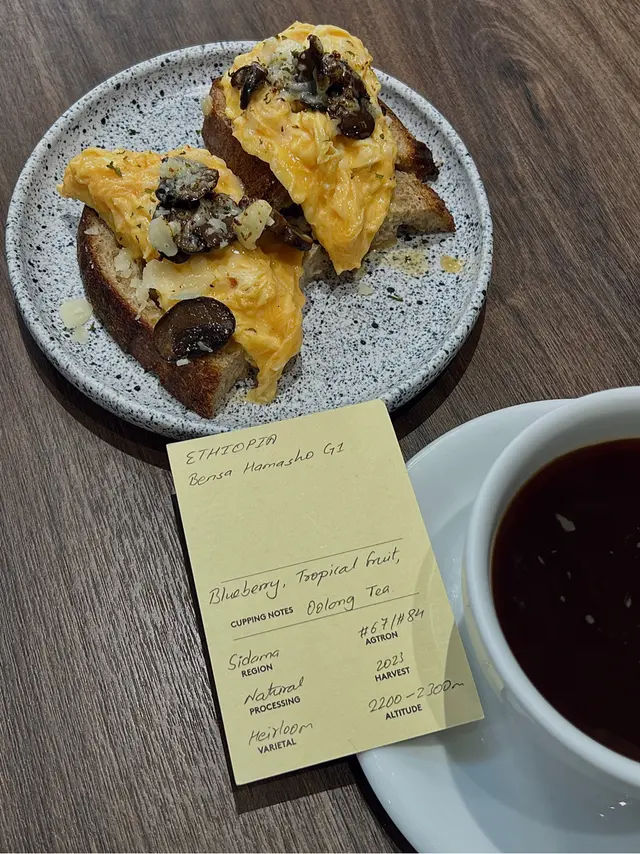 ETHIOPIA
Bensa Hamasho G1
Blueberry, Tropical fruit,
CUPPING NOTES Oolong Tea.
Sidama #67/#84
REGION AGTRON
Natural 2023
PROCESSING HARVEST
Heirloom 2200-2300m
VARIETAL ALTITUDE